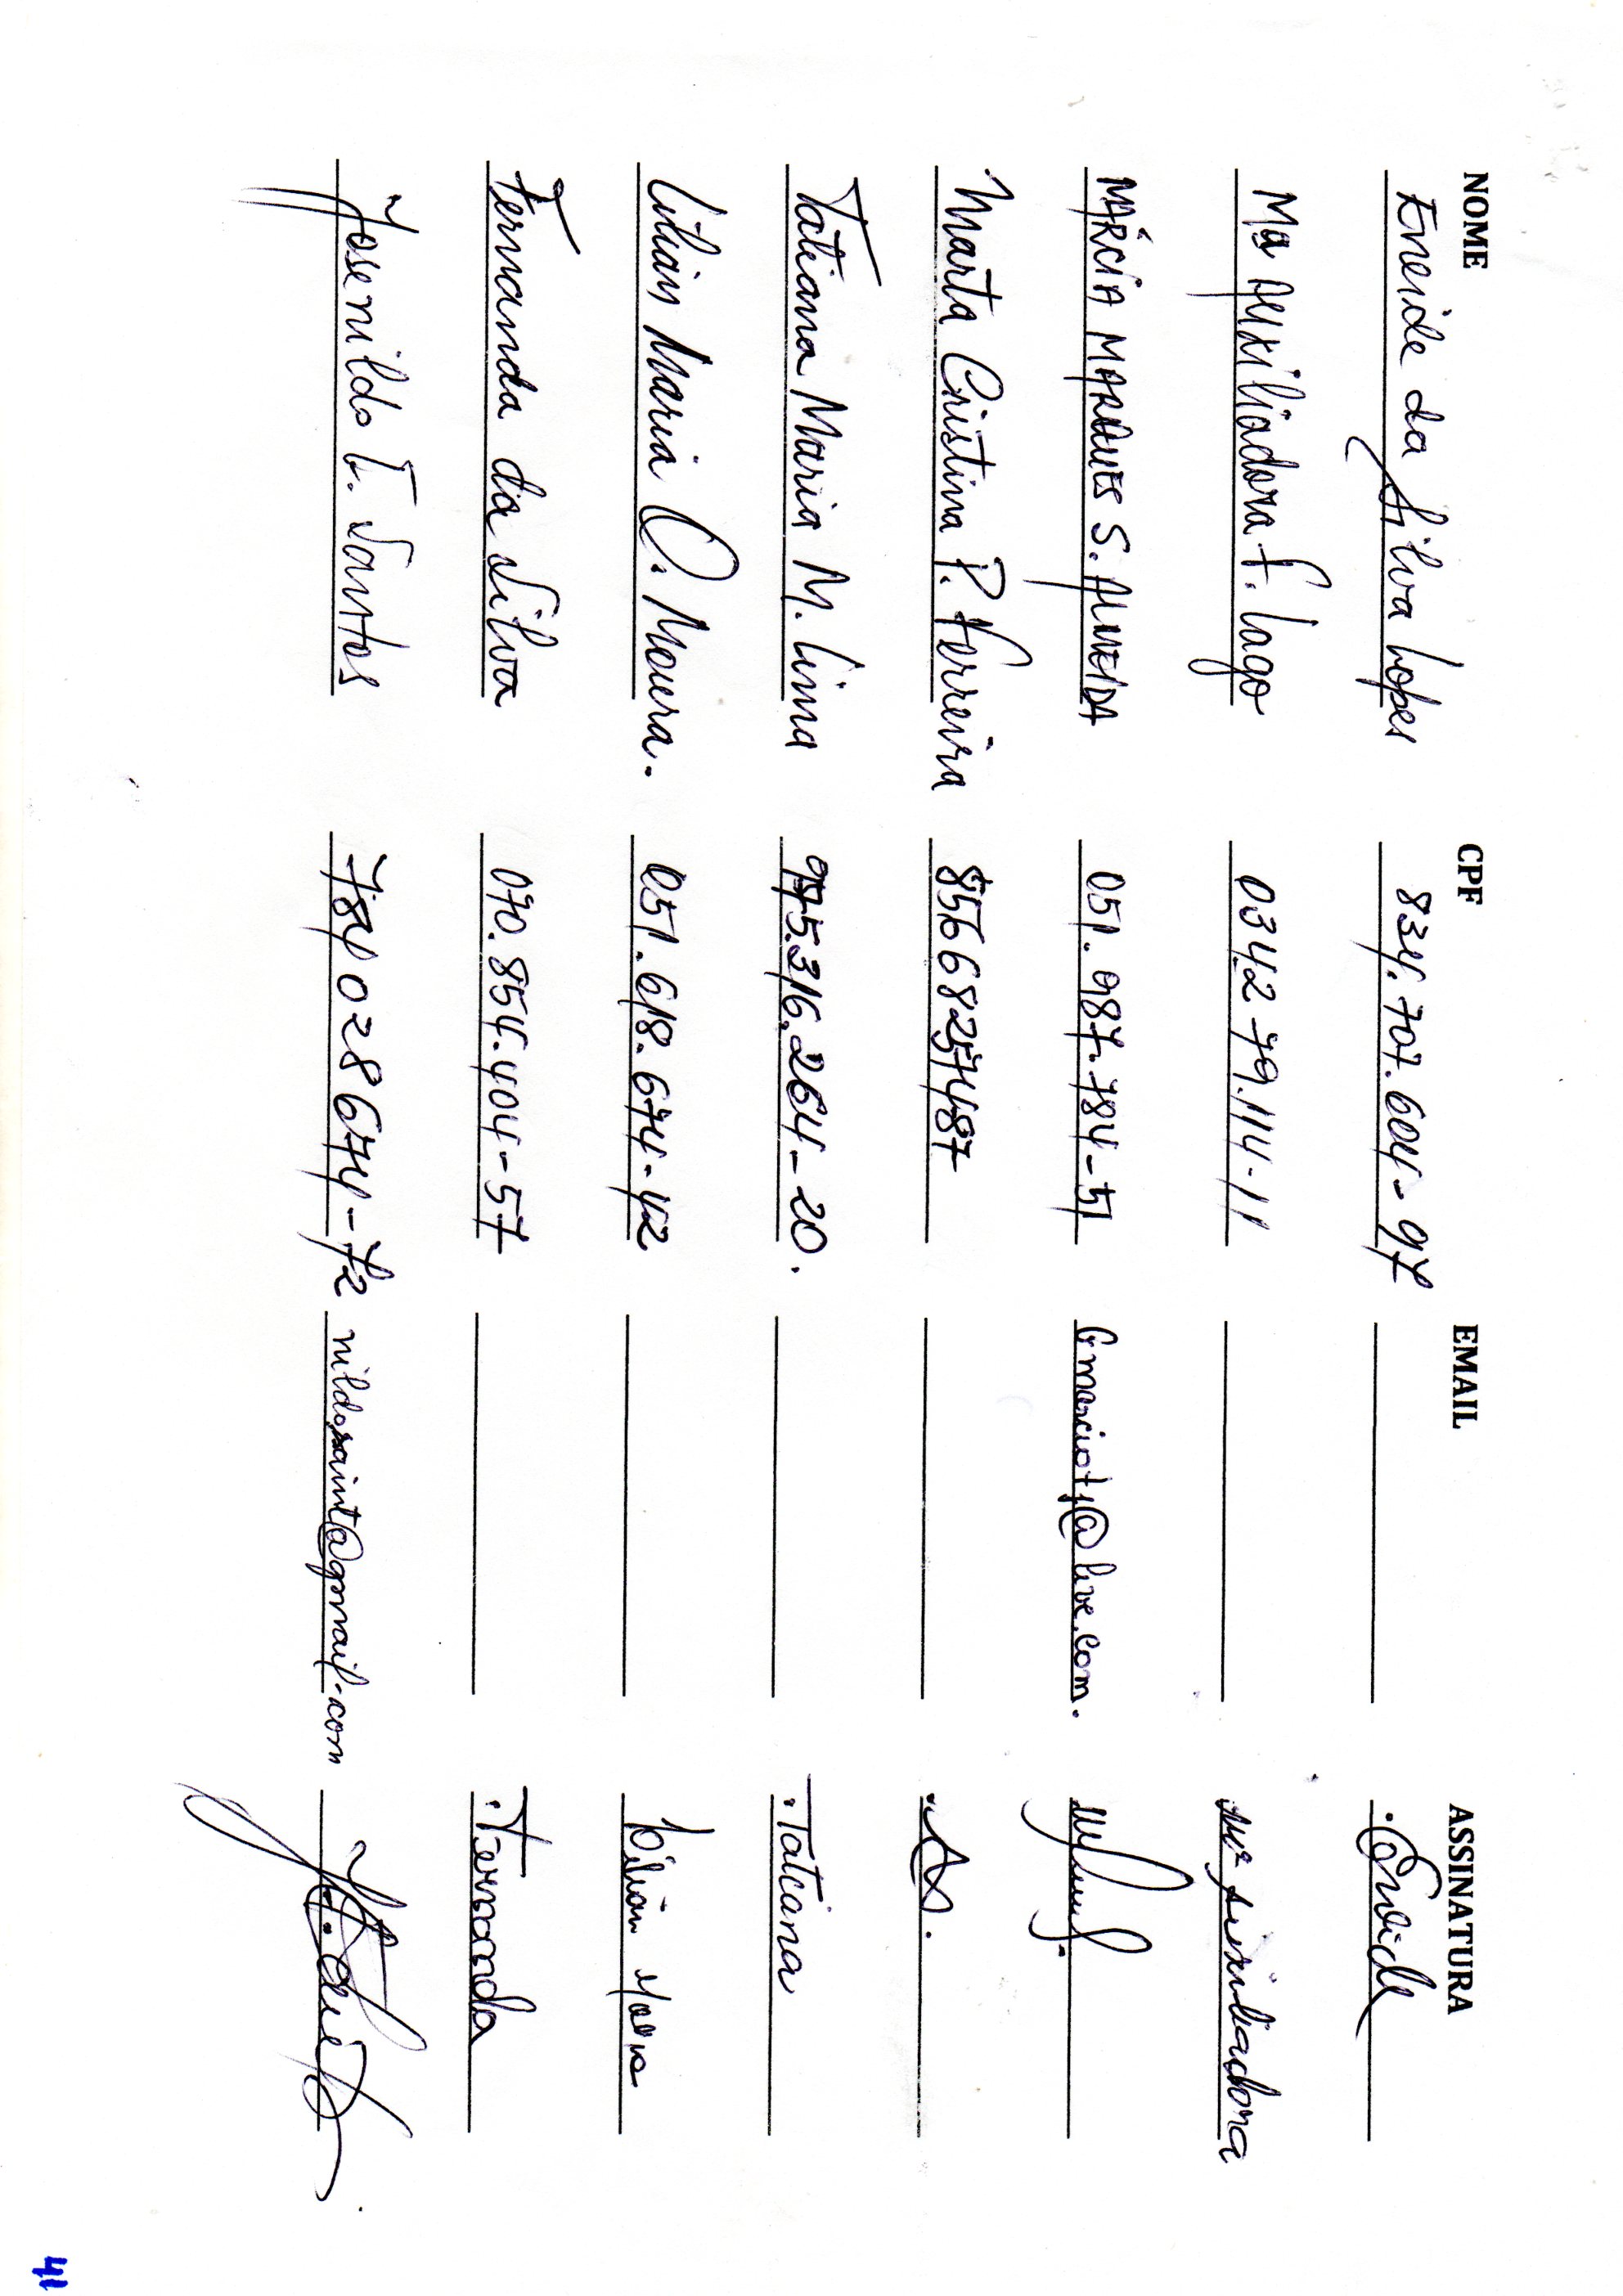 NOME CPF EMAIL ASSINATURA
Eneide da Silva Lopes 834.707.604-97 Eneide
Mª Auxiliadora F. Lago 034.279.114-11 Mª Auxiliadora
MÁRCIA MARQUES S. ALMEIDA 051.987.784-51 @live.com.
Marta Cristina P. Ferreira 85668257487
Tatiana Maria M. Lima 975.316.264-20. Tatiana
Lilian Maria O. Moura. 051.618.674-42 Lilian Maria
Fernanda da Silva 070.854.404-57 Fernanda
Josenildo T. Santos 784028674-72 nildosaint@gmail.com
41